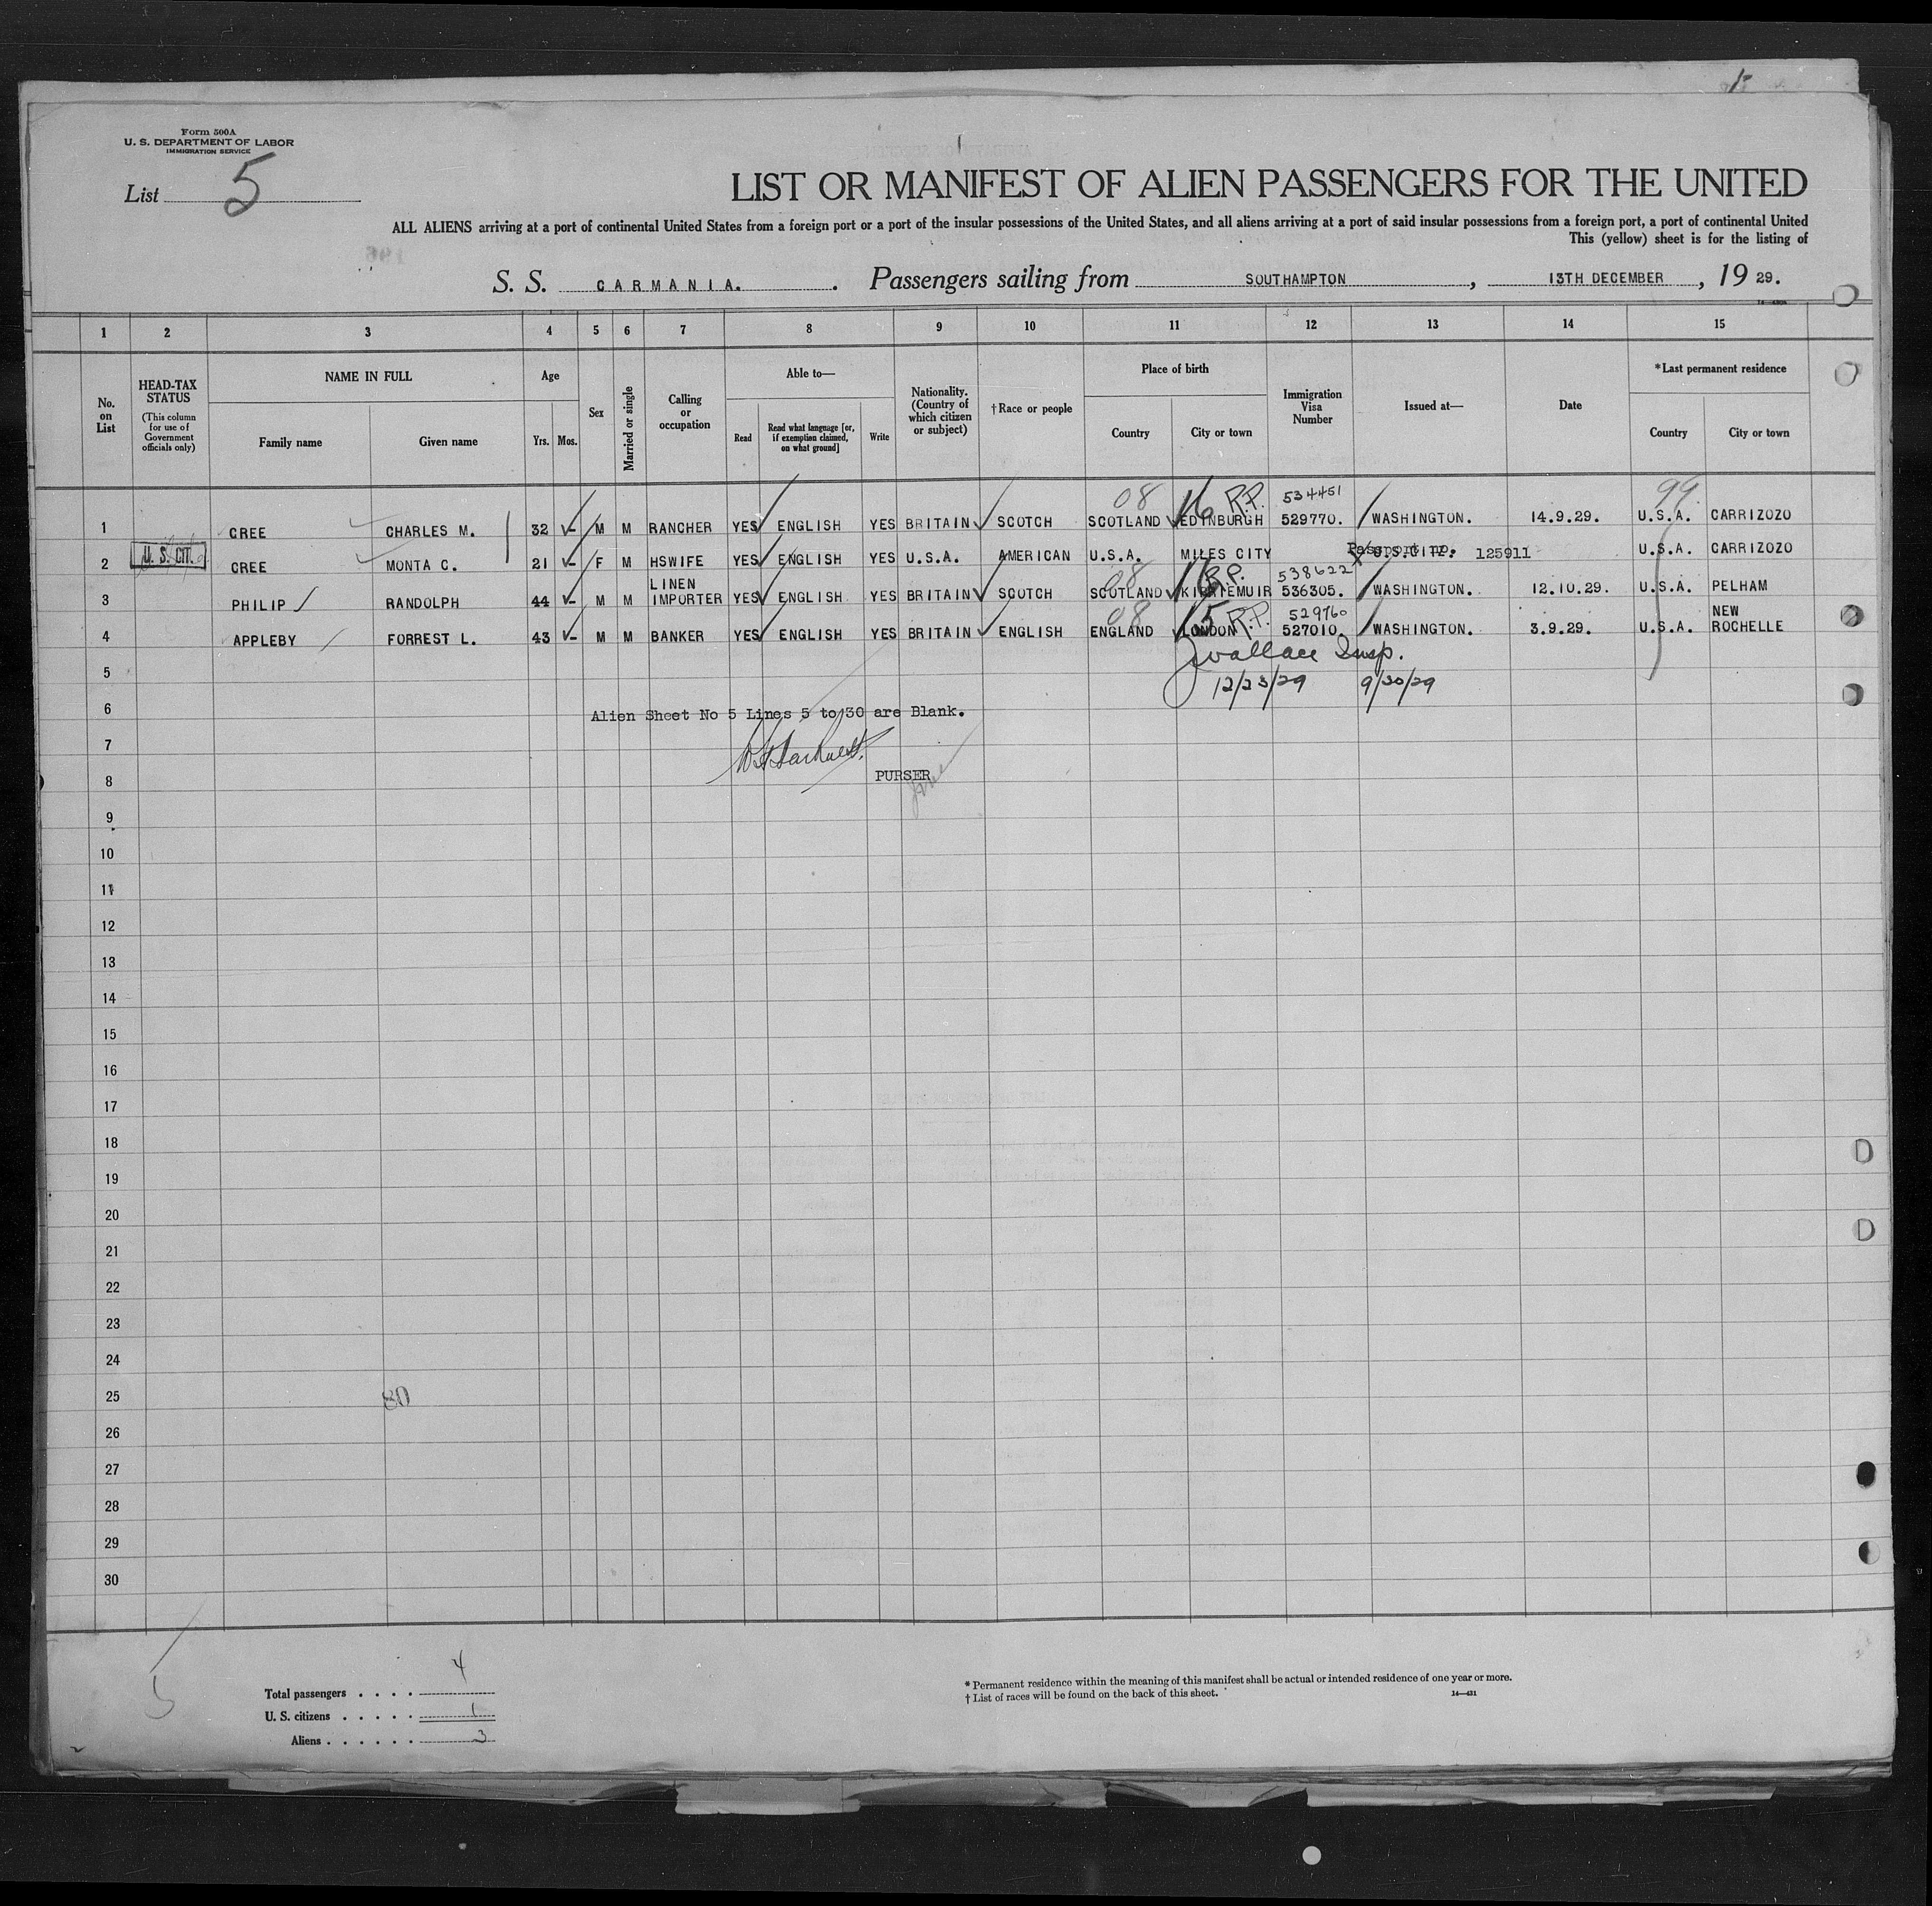 Form 500A
U. S. DEPARTMENT OF LABOR
IMMIGRATION SERVICE
List 5
LIST OR MANIFEST OF ALIEN PASSENGERS FOR THE UNITED
ALL ALIENS arriving at a port of continental United States from a foreign port or a port of the insular possessions of the United States, and all aliens arriving at a port of said insular possessions from a foreign port, a port of continental United
This (yellow) sheet is for the listing of
S. S. CARMANIA. Passengers sailing from SOUTHAMPTON, 13TH DECEMBER, 19 29.
1 2 3 4 5 6 7 8 9 10 11 12 13 14 15
No. on List
HEAD-TAX STATUS
(This column for use of Government officials only)
NAME IN FULL
Family name Given name
Age
Yrs. Mos.
Sex
Married or single
Calling or occupation
Able to—
Read
Read what language [or, if exemption claimed, on what ground]
Write
Nationality. (Country of which citizen or subject)
†Race or people
Place of birth
Country City or town
Immigration Visa Number
Issued at—
Date
*Last permanent residence
Country City or town
08 16 R.P. 534451 99.
1 CREE CHARLES M. 32 - M M RANCHER YES ENGLISH YES BRITAIN SCOTCH SCOTLAND EDINBURGH 529770. WASHINGTON. 14.9.29. U.S.A. CARRIZOZO
2 U. S. CIT. CREE MONTA C. 21 - F M HSWIFE YES ENGLISH YES U.S.A. AMERICAN U.S.A. MILES CITY Passport no. U.S.CIT. 125911 U.S.A. CARRIZOZO
08 16 R.P. 538622
3 PHILIP RANDOLPH 44 - M M LINEN IMPORTER YES ENGLISH YES BRITAIN SCOTCH SCOTLAND KIRRIEMUIR 536305. WASHINGTON. 12.10.29. U.S.A. PELHAM
08 15 R.P. 529760
4 APPLEBY FORREST L. 43 - M M BANKER YES ENGLISH YES BRITAIN ENGLISH ENGLAND LONDON 527010. WASHINGTON. 3.9.29. U.S.A. NEW ROCHELLE
Wallace Insp.
5 12/23/29 9/30/29
6 Alien Sheet No 5 Lines 5 to 30 are Blank.
7
8 PURSER
9
10
11
12
13
14
15
16
17
18
19
20
21
22
23
24
25 80
26
27
28
29
30
Total passengers . . . . 4
U. S. citizens . . . . . 1
Aliens . . . . . . 3
* Permanent residence within the meaning of this manifest shall be actual or intended residence of one year or more.
† List of races will be found on the back of this sheet.
14—431